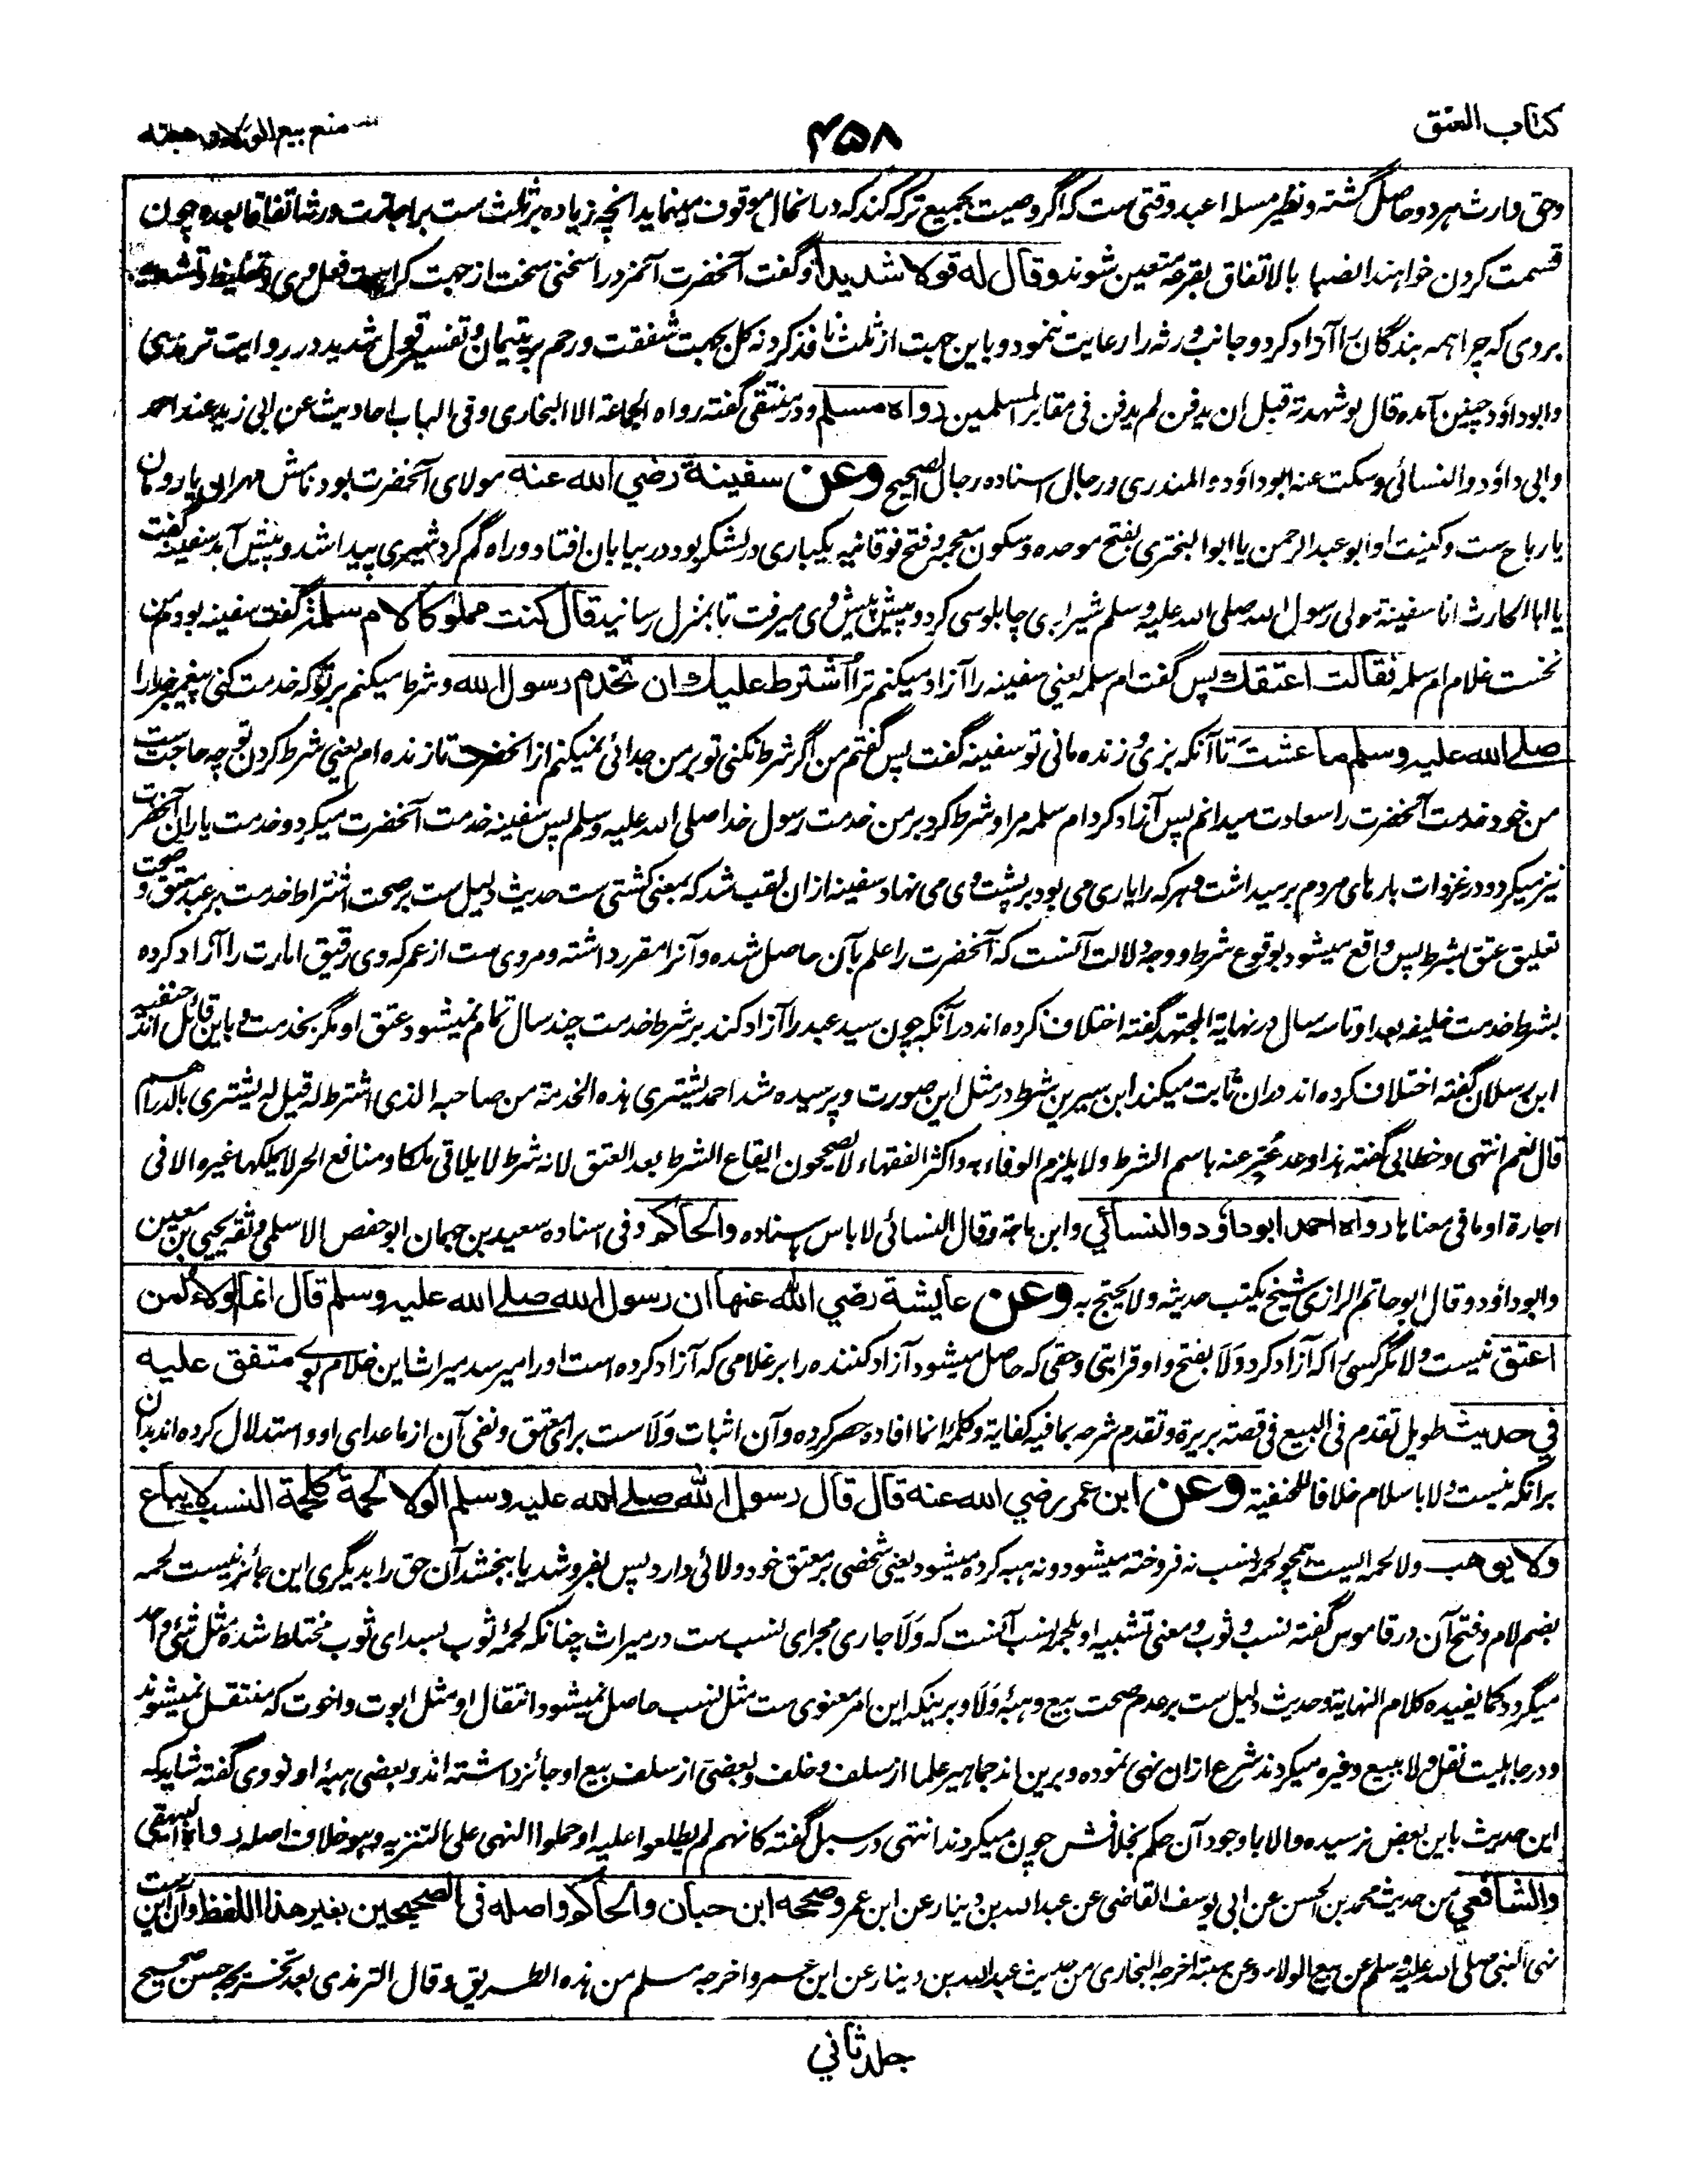 كتاب العتق
۴۵۸
منع بيع الولاء وهبته
وحق وارث هر دو حاصل گشته ونظیر مسئله اعبد وقتی ست که اگر وصیت بجمیع ترکه کند که درانحال موقوف مینماید انچه زیاده بر ثلث ست بر اجازت ورثه اتفاقا بعده چون
قسمت کردن خواهند انصبا بالاتفاق بقرعه متعین شوند وقال له قولا شديدا وگفت آنحضرت آنمرد را سخنی سخت از جهت کراهت فعل وی وتغلیظ وتشدید
بروی که چرا همه بندگان را آزاد کرد وجانب ورثه را رعایت ننمود وباین جهت از ثلث نافذ کرد نه کل بجهت شفقت ورحم بر یتیمان وتفسیر قول شدید در روایت ترمذی
وابوداؤد چنین آمده قال لو شهدته قبل ان یدفن لم یدفن فی مقابر المسلمین رواه مسلم ودر منتقی گفته رواه الجماعة الا البخاری وفی الباب احادیث عن ابی زید عند احمد
وابی داؤد والنسائی وسکت عنه ابوداؤد والمنذری ورجال اسناده رجال الصحیح وعن سفينة رضي الله عنه مولای آنحضرت بود نامش مهران یا رومان
یا رباح ست وکنیت او ابو عبدالرحمن یا ابوالبختری بفتح موحده وسکون معجمه وفتح فوقانیه یکباری در لشکر بود در بیابان افتاد وراه گم کرد شیری پیدا شد وپیش آمد سفینه گفت
یا ابا الحارث انا سفینة مولی رسول الله صلی الله علیه وسلم شیر لابی چابلوسی کرد وپیش پیش وی میرفت تا بمنزل رسانید قال كنت مملوكا لام سلمة گفت سفینه بودم من
نخست غلام ام سلمه فقالت اعتقك پس گفت ام سلمه یعنی سفینه را آزاد میکنم ترا اشترط عليك ان تخدم رسول الله وشرط میکنم بر تو که خدمت کنی پیغمبر خدا را
صلى الله عليه وسلم ما عشت تا آنکه بزی وزنده مانی تو سفینه گفت پس گفتم من اگر شرط نکنی تو بر من جدائی نمیکنم از آنحضرت تا زنده ام یعنی شرط کردن تو چه حاجت ست
من خود خدمت آنحضرت را سعادت میدانم پس آزاد کرد ام سلمه مرا وشرط کرد بر من خدمت رسول خدا صلی الله علیه وسلم پس سفینه خدمت آنحضرت میکرد وخدمت یاران آنحضرت
نیز میکرد ودر غزوات بارهای مردم برمیداشت وهر که را باری می بود بر پشت وی می نهاد سفینه ازان لقب شد که بمعنی کشتی ست حدیث دلیل ست بر صحت اشتراط خدمت بر عبد معتق وصحت
تعلیق عتق بشرط پس واقع میشود بوقوع شرط ووجه دلالت آنست که آنحضرت را علم بآن حاصل شده وآنرا مقرر داشته ومروی ست از عمر که وی رقیق امارت را آزاد کرده
بشرط خدمت خلیفه بعد او تا سه سال در نهایة المجتهد گفته اختلاف نکرده اند در آنکه چون سید عبد را آزاد کند بر شرط خدمت چند سال تمام نمیشود عتق او مگر بخدمت وباین قائل اند حنفیه
ابن رسلان گفته اختلاف کرده اند دران ثابت میکند ابن سیرین شرط در مثل این صورت وپرسیده شد احمد یشتری هذه الخدمة من صاحبه الذی اشترط له قیل له یشتری بالدراهم
قال نعم انتهی وخطابی گفته هذا وعد عُبّر عنه باسم الشرط ولا یلزم الوفاء به واکثر الفقهاء لا یصححون ایقاع الشرط بعد العتق لانه شرط لا یلاقی ملکا ومنافع الحر لا یملکها غیره الا فی
اجارة او ما فی معناها رواه احمد ابوداؤد والنسائي وابن ماجة وقال النسائی لا باس باسناده والحاكم وفی اسناده سعید بن جمهان ابو حفص الاسلمی وثقه یحیی بن معین
وابوداؤد وقال ابوحاتم الرازی شیخ یکتب حدیثه ولا یحتج به وعن عايشة رضي الله عنها ان رسول الله صلى الله عليه وسلم قال انما الولاء لمن
اعتق نیست ولا مگر کسی را که آزاد کرد ووَلا بفتح واو قرابتی وحقی که حاصل میشود آزاد کننده را بر غلامی که آزاد کرده است او را میرسد میراث این غلام بوے متفق عليه
في حديث طویل تقدم فی البیع فی قصة بریرة وتقدم شرحه بما فیه کفایة وکلمه انما افاده حصر کرده وآن اثبات ولاست برای معتق ونفی آن از ماعدای او واستدلال کرده اند بدان
برانکه نیست ولا باسلام خلافا للحنفیة وعن ابن عمر رضي الله عنه قال قال رسول الله صلى الله عليه وسلم الولاء لحمة كلحمة النسب لا يباع
ولا يوهب ولا لحمه ایست همچو لحمه نسب نه فروخته میشود ونه هبه کرده میشود یعنی شخصی بر معتق خود ولائی دارد پس بفروشد یا ببخشد آن حق را بدیگری این جائز نیست لحمه
بضم لام وفتح آن در قاموس گفته نسب وثوب ومعنی تشبیه او بلحمه نسب آنست که وَلا جاری مجرای نسب ست در میراث چنانکه لحمه ثوب بسدای ثوب مختلط شده مثل شئی واحد
میگردد کما یفیده کلام النهایة وحدیث دلیل ست بر عدم صحت بیع وهبه وَلا وبرینکه این امر معنوی ست مثل نسب حاصل نمیشود انتقال او مثل ابوت واخوت که منتقل نمیشوند
ودر جاهلیت نقل ولا ببیع وغیره میکردند شرع ازان نهی نموده وبرین اند جماهیر علما از سلف وخلف وبعضی از سلف بیع او جائز داشته اند وبعضی هبه او نووی گفته شاید که
این حدیث باین بعض نرسیده والا باوجود آن حکم بخلافش چون میکردند انتهی در سبل گفته کانهم لم یطلعوا علیه او حملوا النهی علی التنزیه وهو خلاف اصله رواه البیهقی
والشافعي من حدیث محمد بن الحسن عن ابی یوسف القاضی عن عبدالله بن دینار عن ابن عمر وصححه ابن حبان والحاكم واصله فی الصحيحين بغير هذا اللفظ وآن این ست
نهی النبی صلی الله علیه وسلم عن بیع الولاء وعن هبته اخرجه البخاری من حدیث عبدالله بن دینار عن ابن عمر واخرجه مسلم من هذه الطریق وقال الترمذی بعد تخریجه حسن صحیح
جلد ثاني